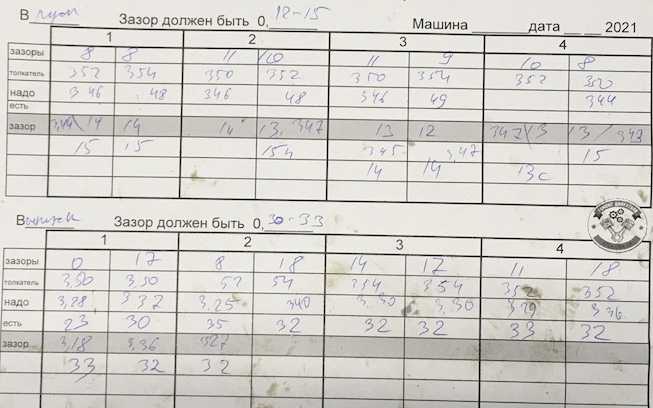 Впуск Зазор должен быть 0, 12-15 Машина дата 2021
1 2 3 4
зазоры 8 8 11 10 11 9 10 8
толкатель 352 354 350 352 350 354 352 350
надо 346 48 346 48 346 49 344
есть
зазор 14 14 14 13, 347 13 12 347 13 13 / 343
15 15 154 345 347 15
14 14 13
Выпуск Зазор должен быть 0, 30-33
1 2 3 4
зазоры 0 17 8 18 14 17 11 18
толкатель 3,50 3,50 52 54 354 354 352 352
надо 3,28 3 37 3,25 340 3,30 3,30 329 3,36
есть 23 30 35 32 32 32 33 32
зазор 3,18 3,36 327
33 32 32